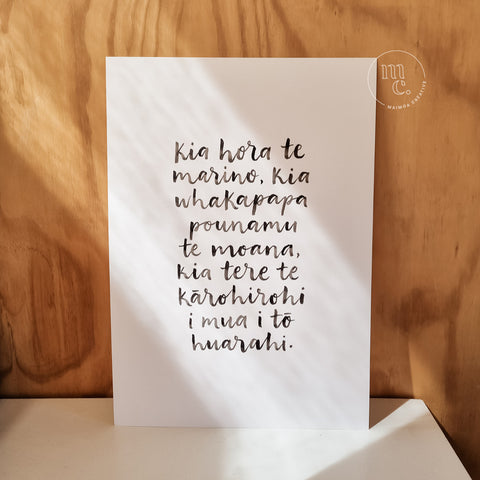 mc
co
MAIMOA CREATIVE
kia hora te
marino, kia
whakapapa
pounamu
te moana,
kia tere te
kārohirohi
i mua i tō
huarahi.